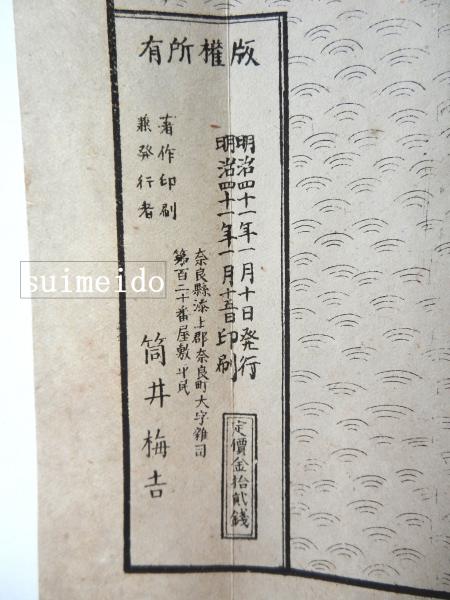 版權所有
明治四十一年一月十日発行
明治四十一年一月十五日印刷
定價金拾貳錢
奈良縣添上郡奈良町大字雜司
第百二十番屋敷平民
著作印刷
兼發行者
筒井梅吉
suimeido